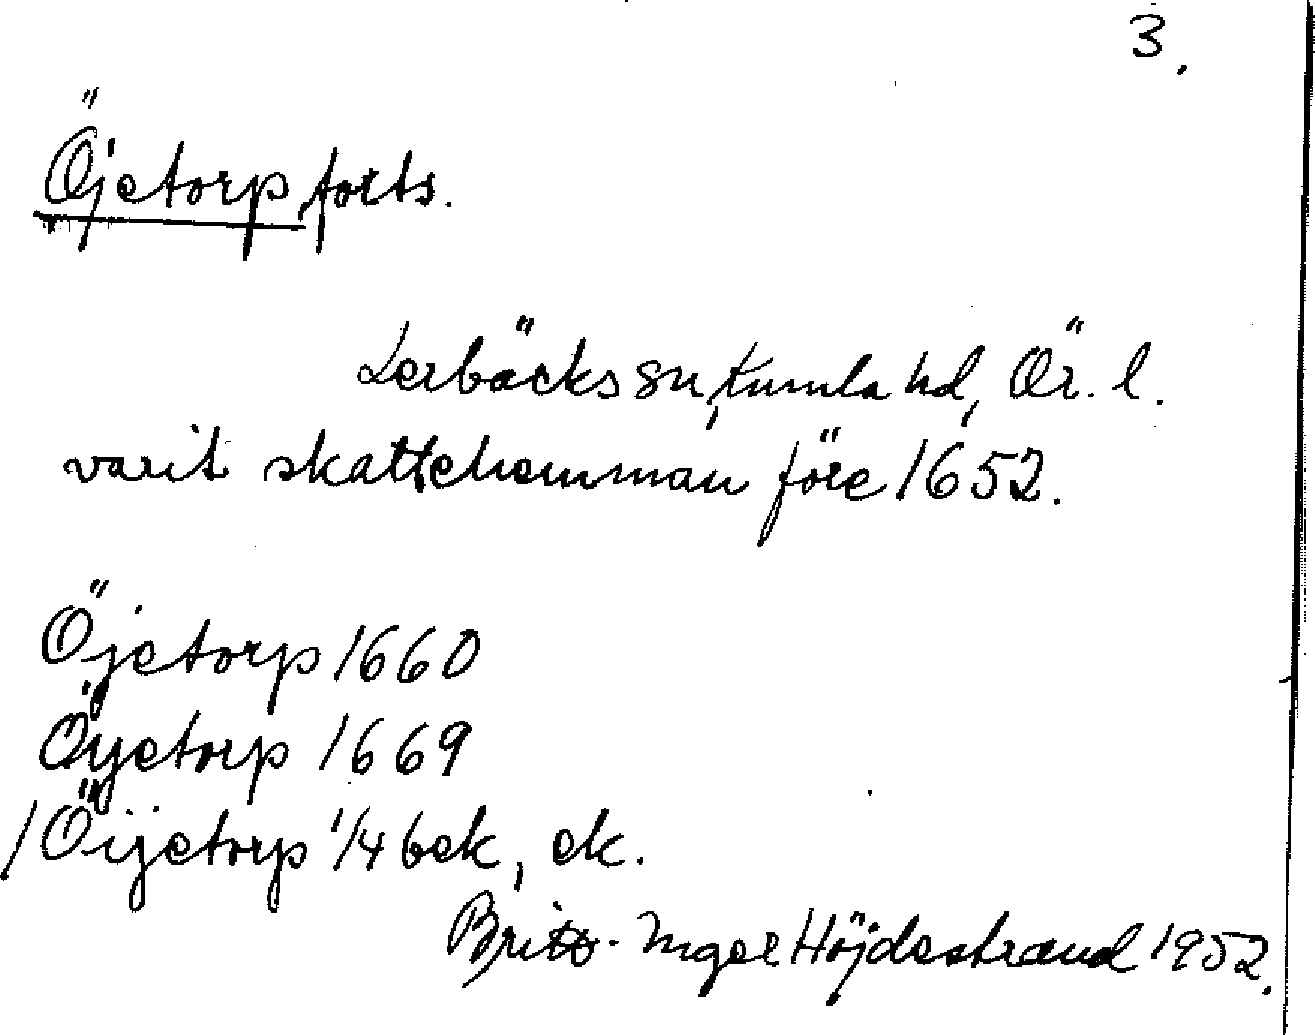 3.
Öjetorp, forts.
Lerbäcks sn, Kumla hd, Ör. l.
varit skattehemman före 1652.
Öjetorp 1660
Öyetorp 1669
/Öijetorp 1/4 bek, ek.
Britt-Inger Höjdestrand 1952.